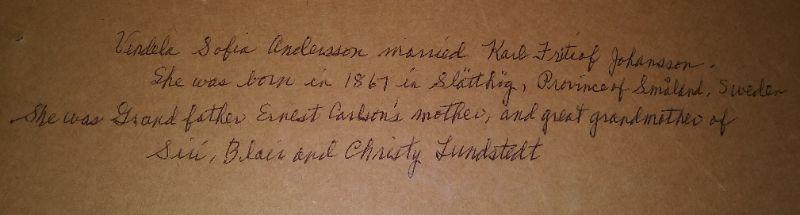 Vendela Sofia Andersson married Karl Fritiof Johansson.
She was born in 1867 in Slätthög, Province of Småland, Sweden
She was Grandfather Ernest Carlson's mother, and great grandmother of
Siri, Blair and Christy Lundstedt